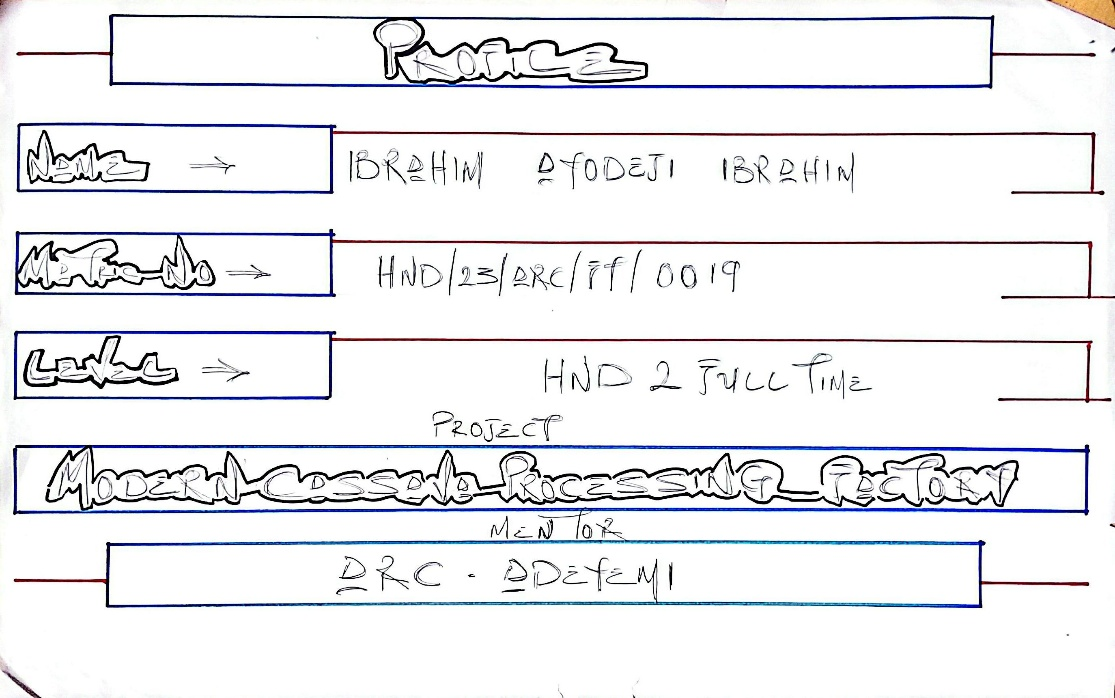 PROFILE
NAME → IBRAHIM AYODEJI IBRAHIM
MATRIC-NO → HND/23/ARC/FT/0019
LEVEL → HND 2 FULL TIME
PROJECT
MODERN CASSAVA PROCESSING FACTORY
MENTOR
ARC. ADEYEMI